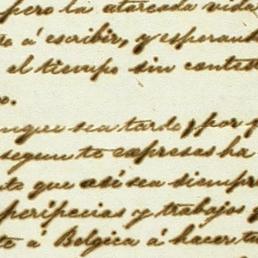 pero la atareada vida
á escribir, y esperan
el tiempo sin contest
o.
nque sea tarde, por
segun te expresas ha
te que así sea siempre
peripecias y trabajos
te á Belgica á hacer tu